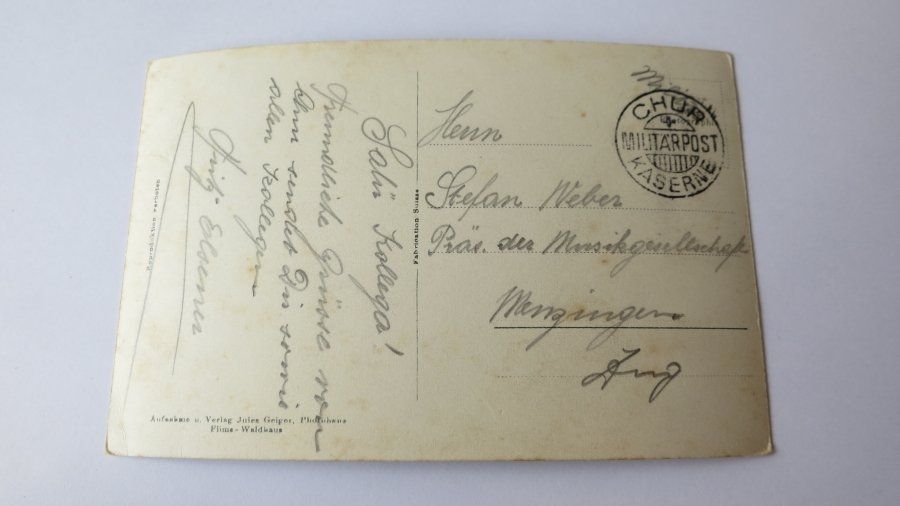 "Salü" Kollega!
Freundliche Grüsse von
sendet Dir sowie
allen Kollegen
Fritz Elsener
Reproduktion verboten
Aufnahme u. Verlag Jules Geiger, Photohaus
Flims-Waldhaus
Fabrication Suisse
CHUR
MILITÄRPOST
KASERNE
Herrn
Stefan Weber
Präs. der Musikgesellschaft
Menzingen
Zug